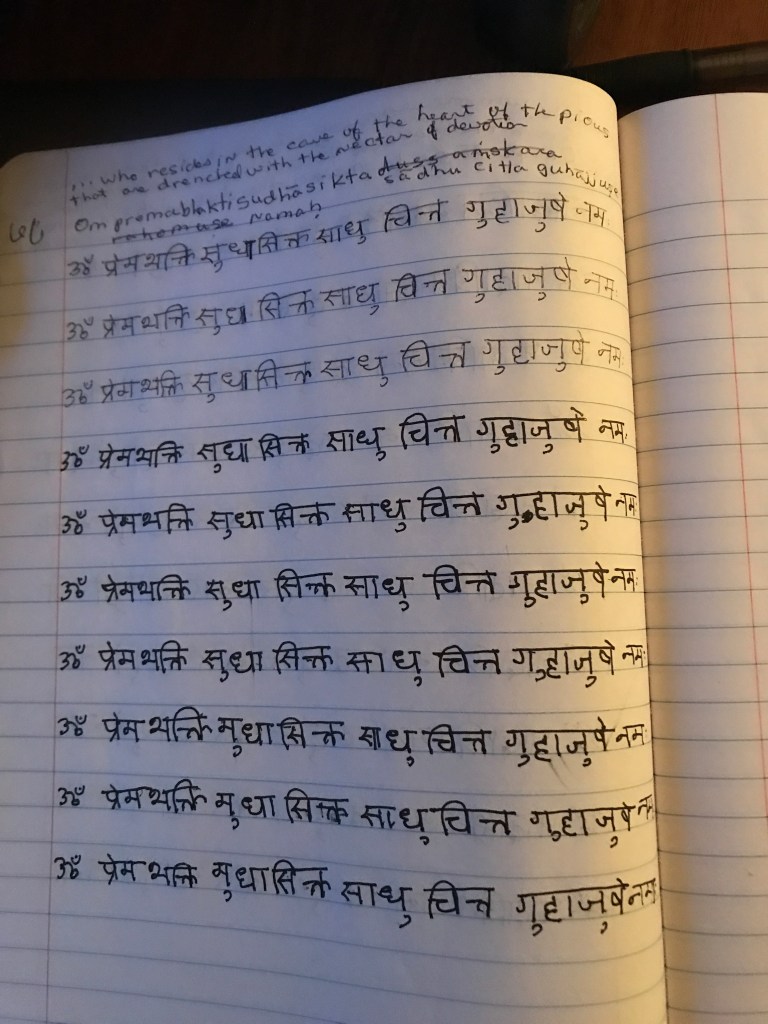 ... who resides in the cave of the heart of the pious
that are drenched with the nectar of devotion
duss amskara
Om premabhaktisudhāsikta sādhu citta guhājuse
namah
ॐ प्रेमभक्ति सुधासिक्त साधु चित्त गुहाजुषे नमः
ॐ प्रेमभक्ति सुधा सिक्त साधु चित्त गुहाजुषे नमः
ॐ प्रेमभक्ति सुधासिक्त साधु चित्त गुहाजुषे नमः
ॐ प्रेमभक्ति सुधा सिक्त साधु चित्त गुहाजुषे नमः
ॐ प्रेमभक्ति सुधा सिक्त साधु चित्त गुहाजुषे नमः
ॐ प्रेमभक्ति सुधा सिक्त साधु चित्त गुहाजुषे नमः
ॐ प्रेमभक्ति सुधा सिक्त साधु चित्त गुहाजुषे नमः
ॐ प्रेम भक्ति मुधासिक्त साधु चित्त गुहाजुषे नमः
ॐ प्रेमभक्ति मुधा सिक्त साधु चित्त गुहाजुषे नमः
ॐ प्रेम भक्ति मुधासिक्त साधु चित्त गुहाजुषे नमः